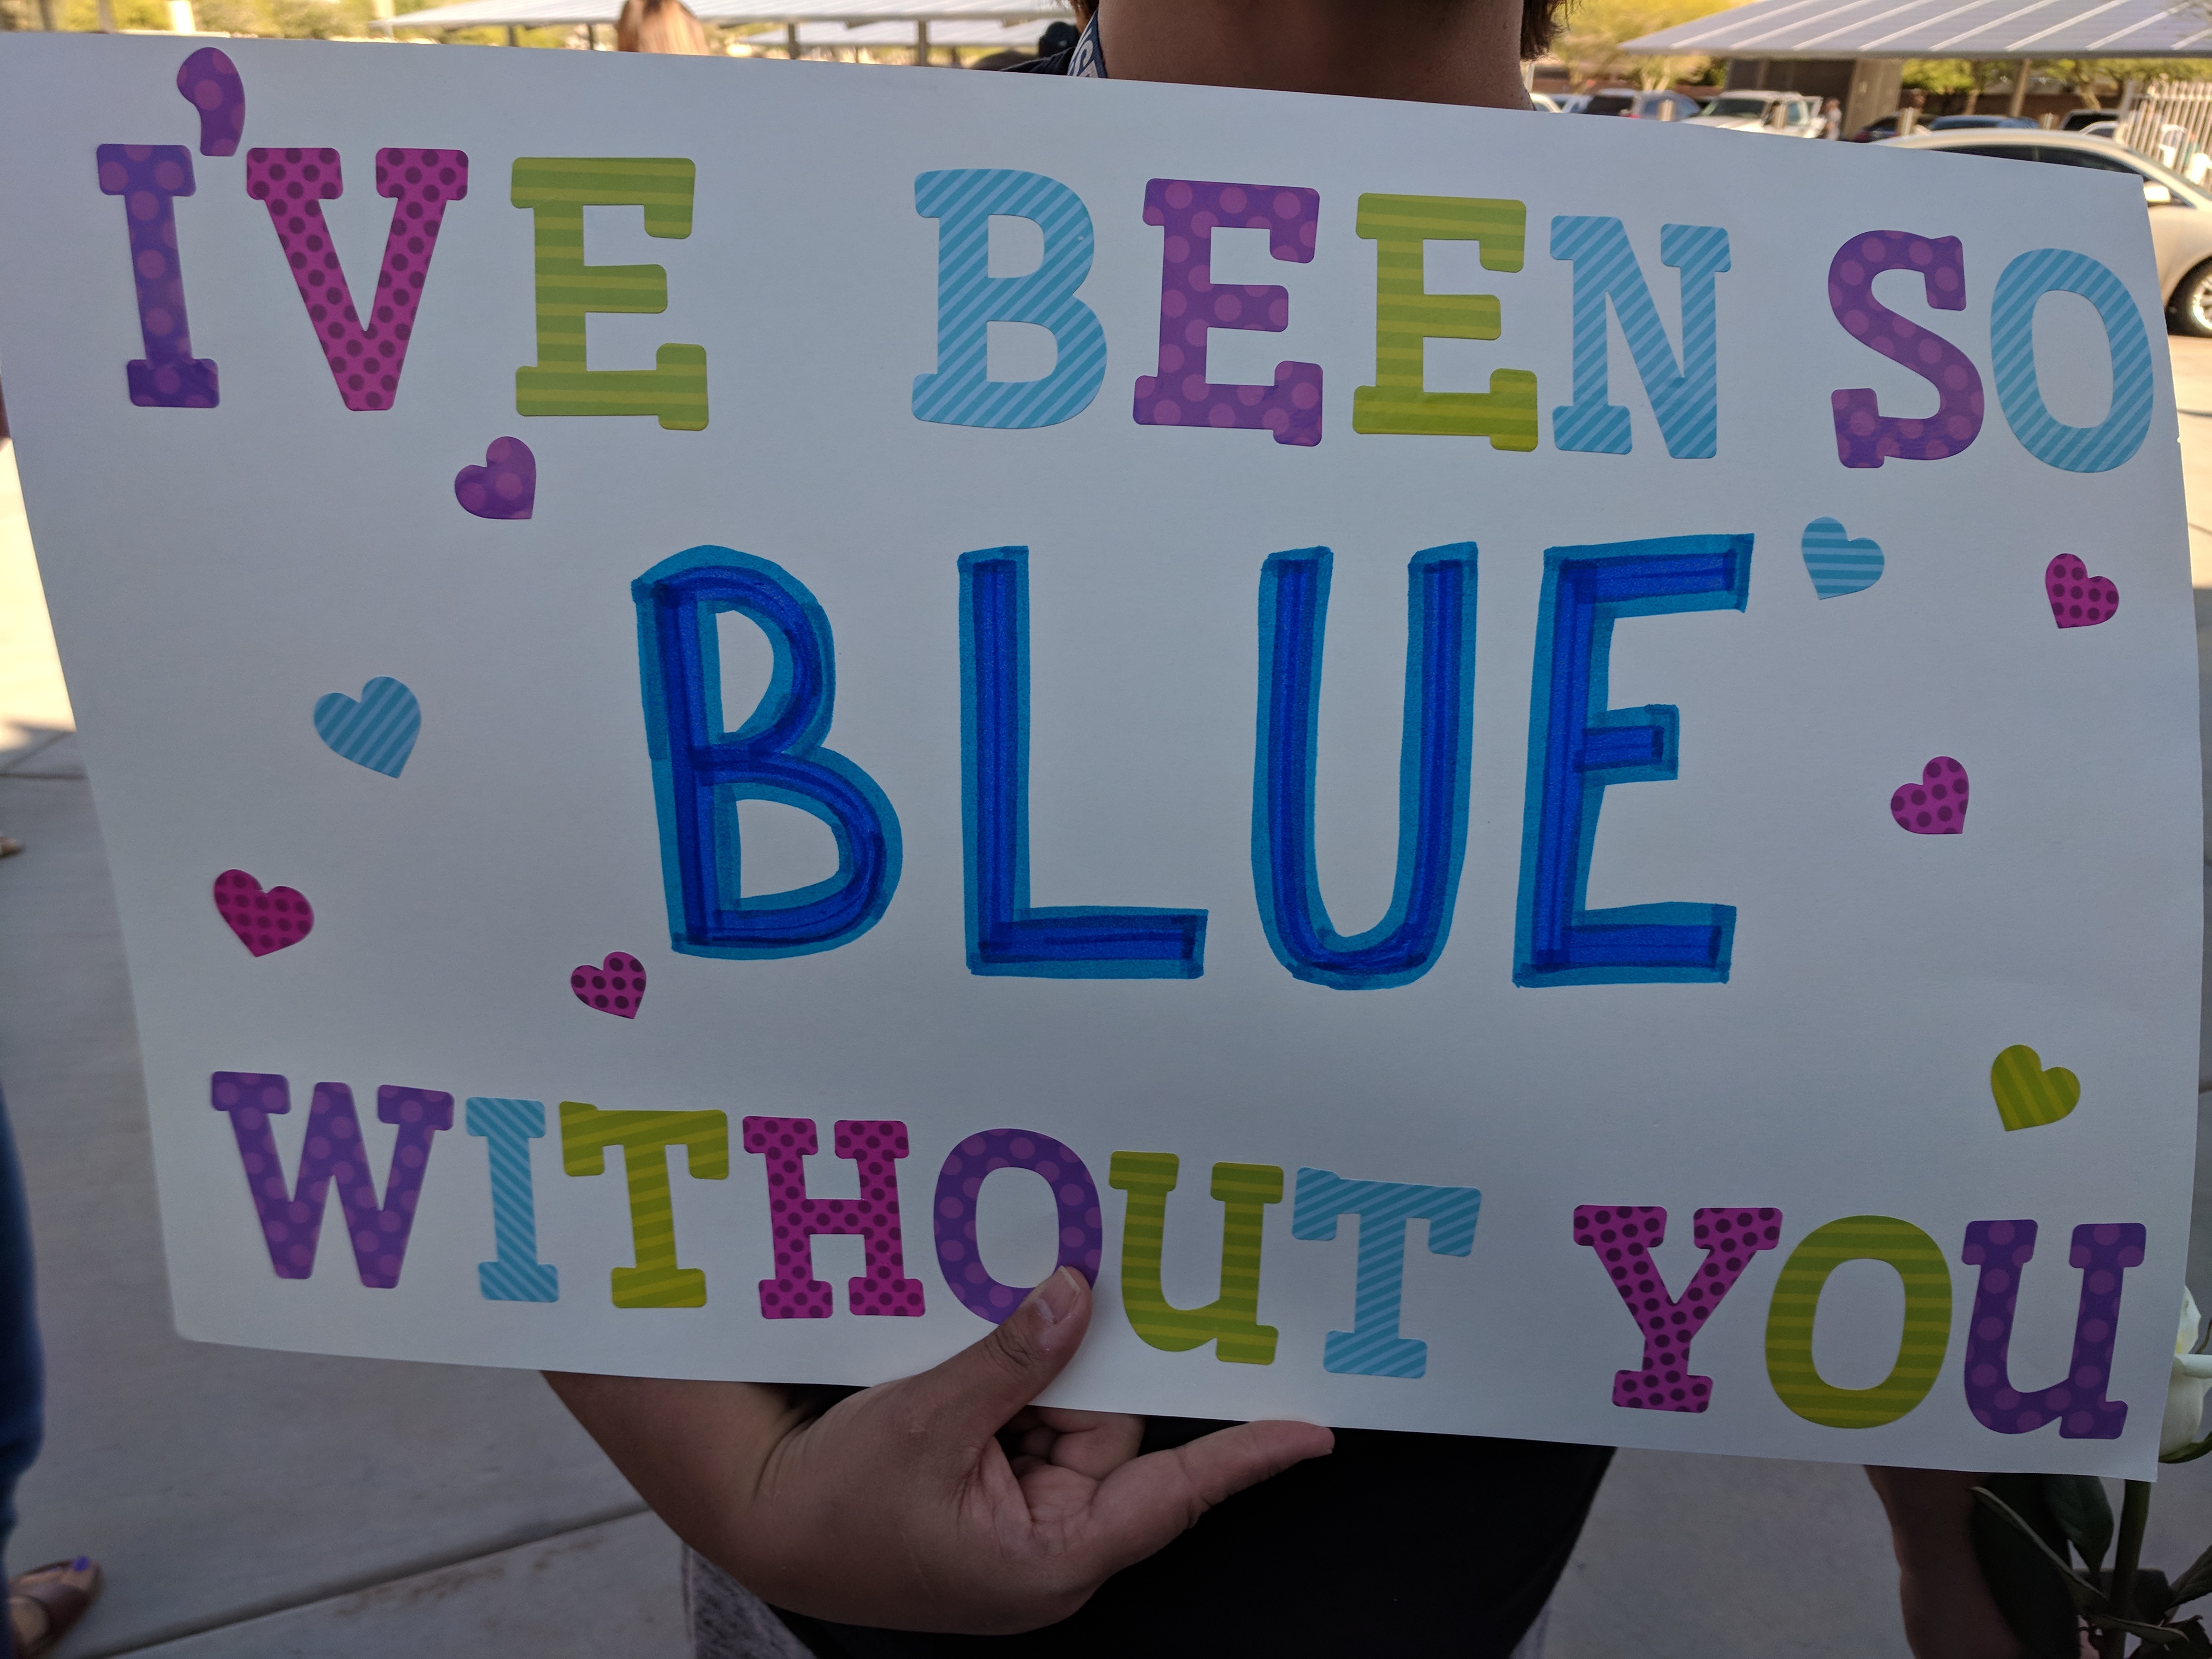 I'VE BEEN SO
BLUE
WITHOUT YOU